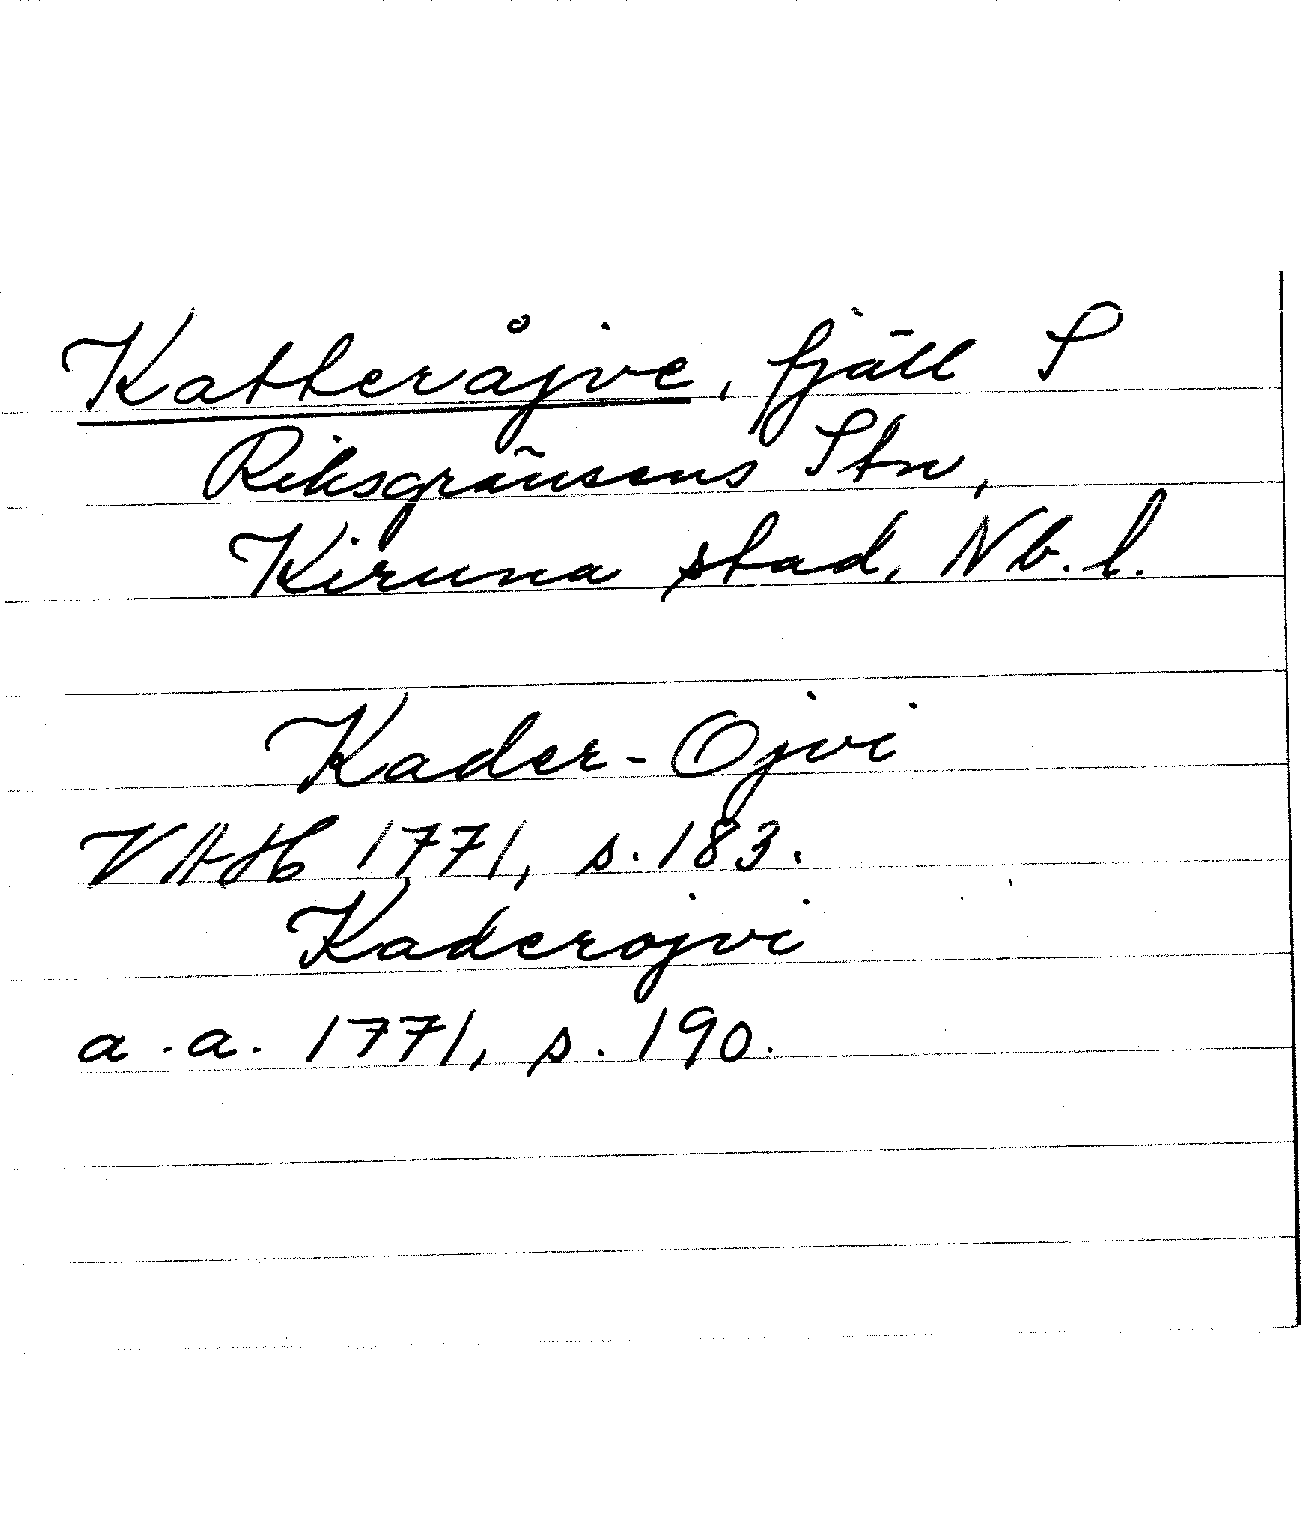 Katteråjve, fjäll S
Riksgränsens Stn,
Kiruna stad, Nb. l.
Kader-Ojvi
VAH 1771, s. 183.
Kaderojvi
a. a. 1771, s. 190.